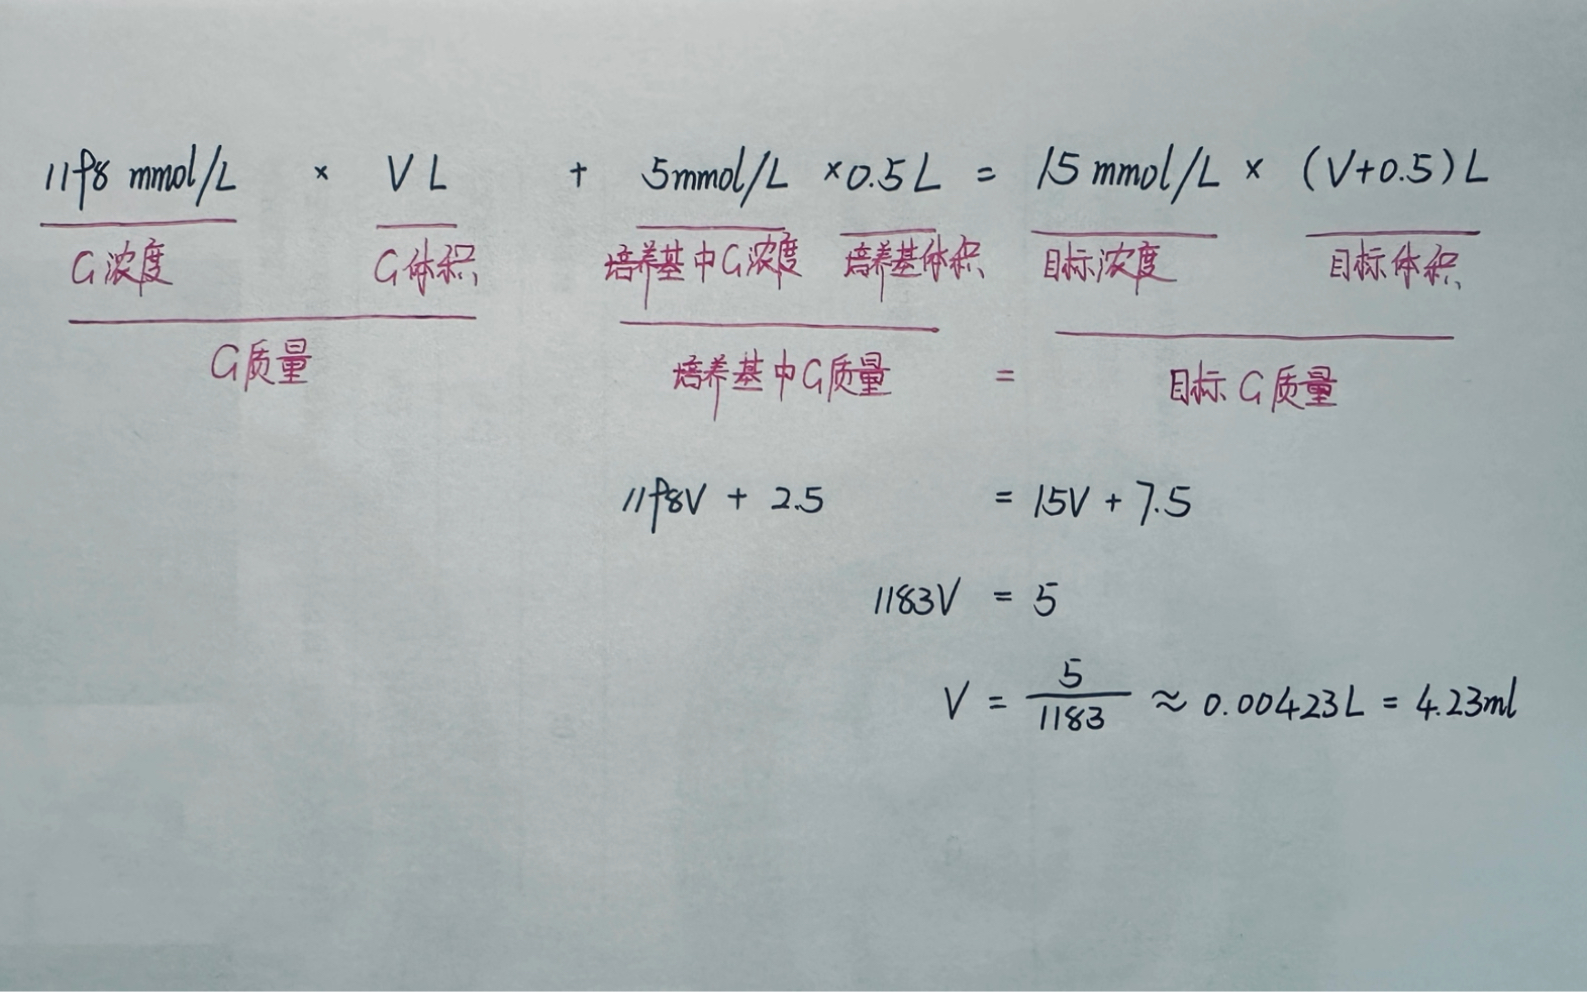 1198 mmol/L × V L + 5mmol/L ×0.5L = 15 mmol/L × (V+0.5)L
G浓度 G体积 培养基中G浓度 培养基体积 目标浓度 目标体积
G质量 培养基中G质量 = 目标G质量
1198V + 2.5 = 15V + 7.5
1183V = 5
V = 5/1183 ≈ 0.00423L = 4.23ml